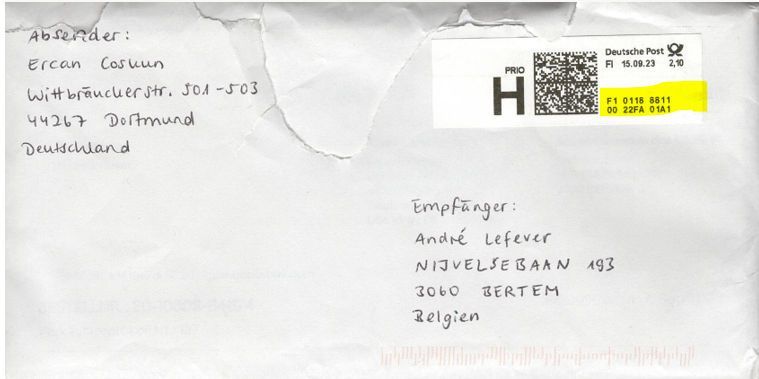 Absender:
Ercan Coskun
Wittbräuckerstr. 501-503
44267 Dortmund
Deutschland
PRIO
H
Deutsche Post
FI 15.09.23 2,10
F1 0118 8811
00 22FA 01A1
Empfänger:
André Lefever
NIJVELSEBAAN 193
3060 BERTEM
Belgien